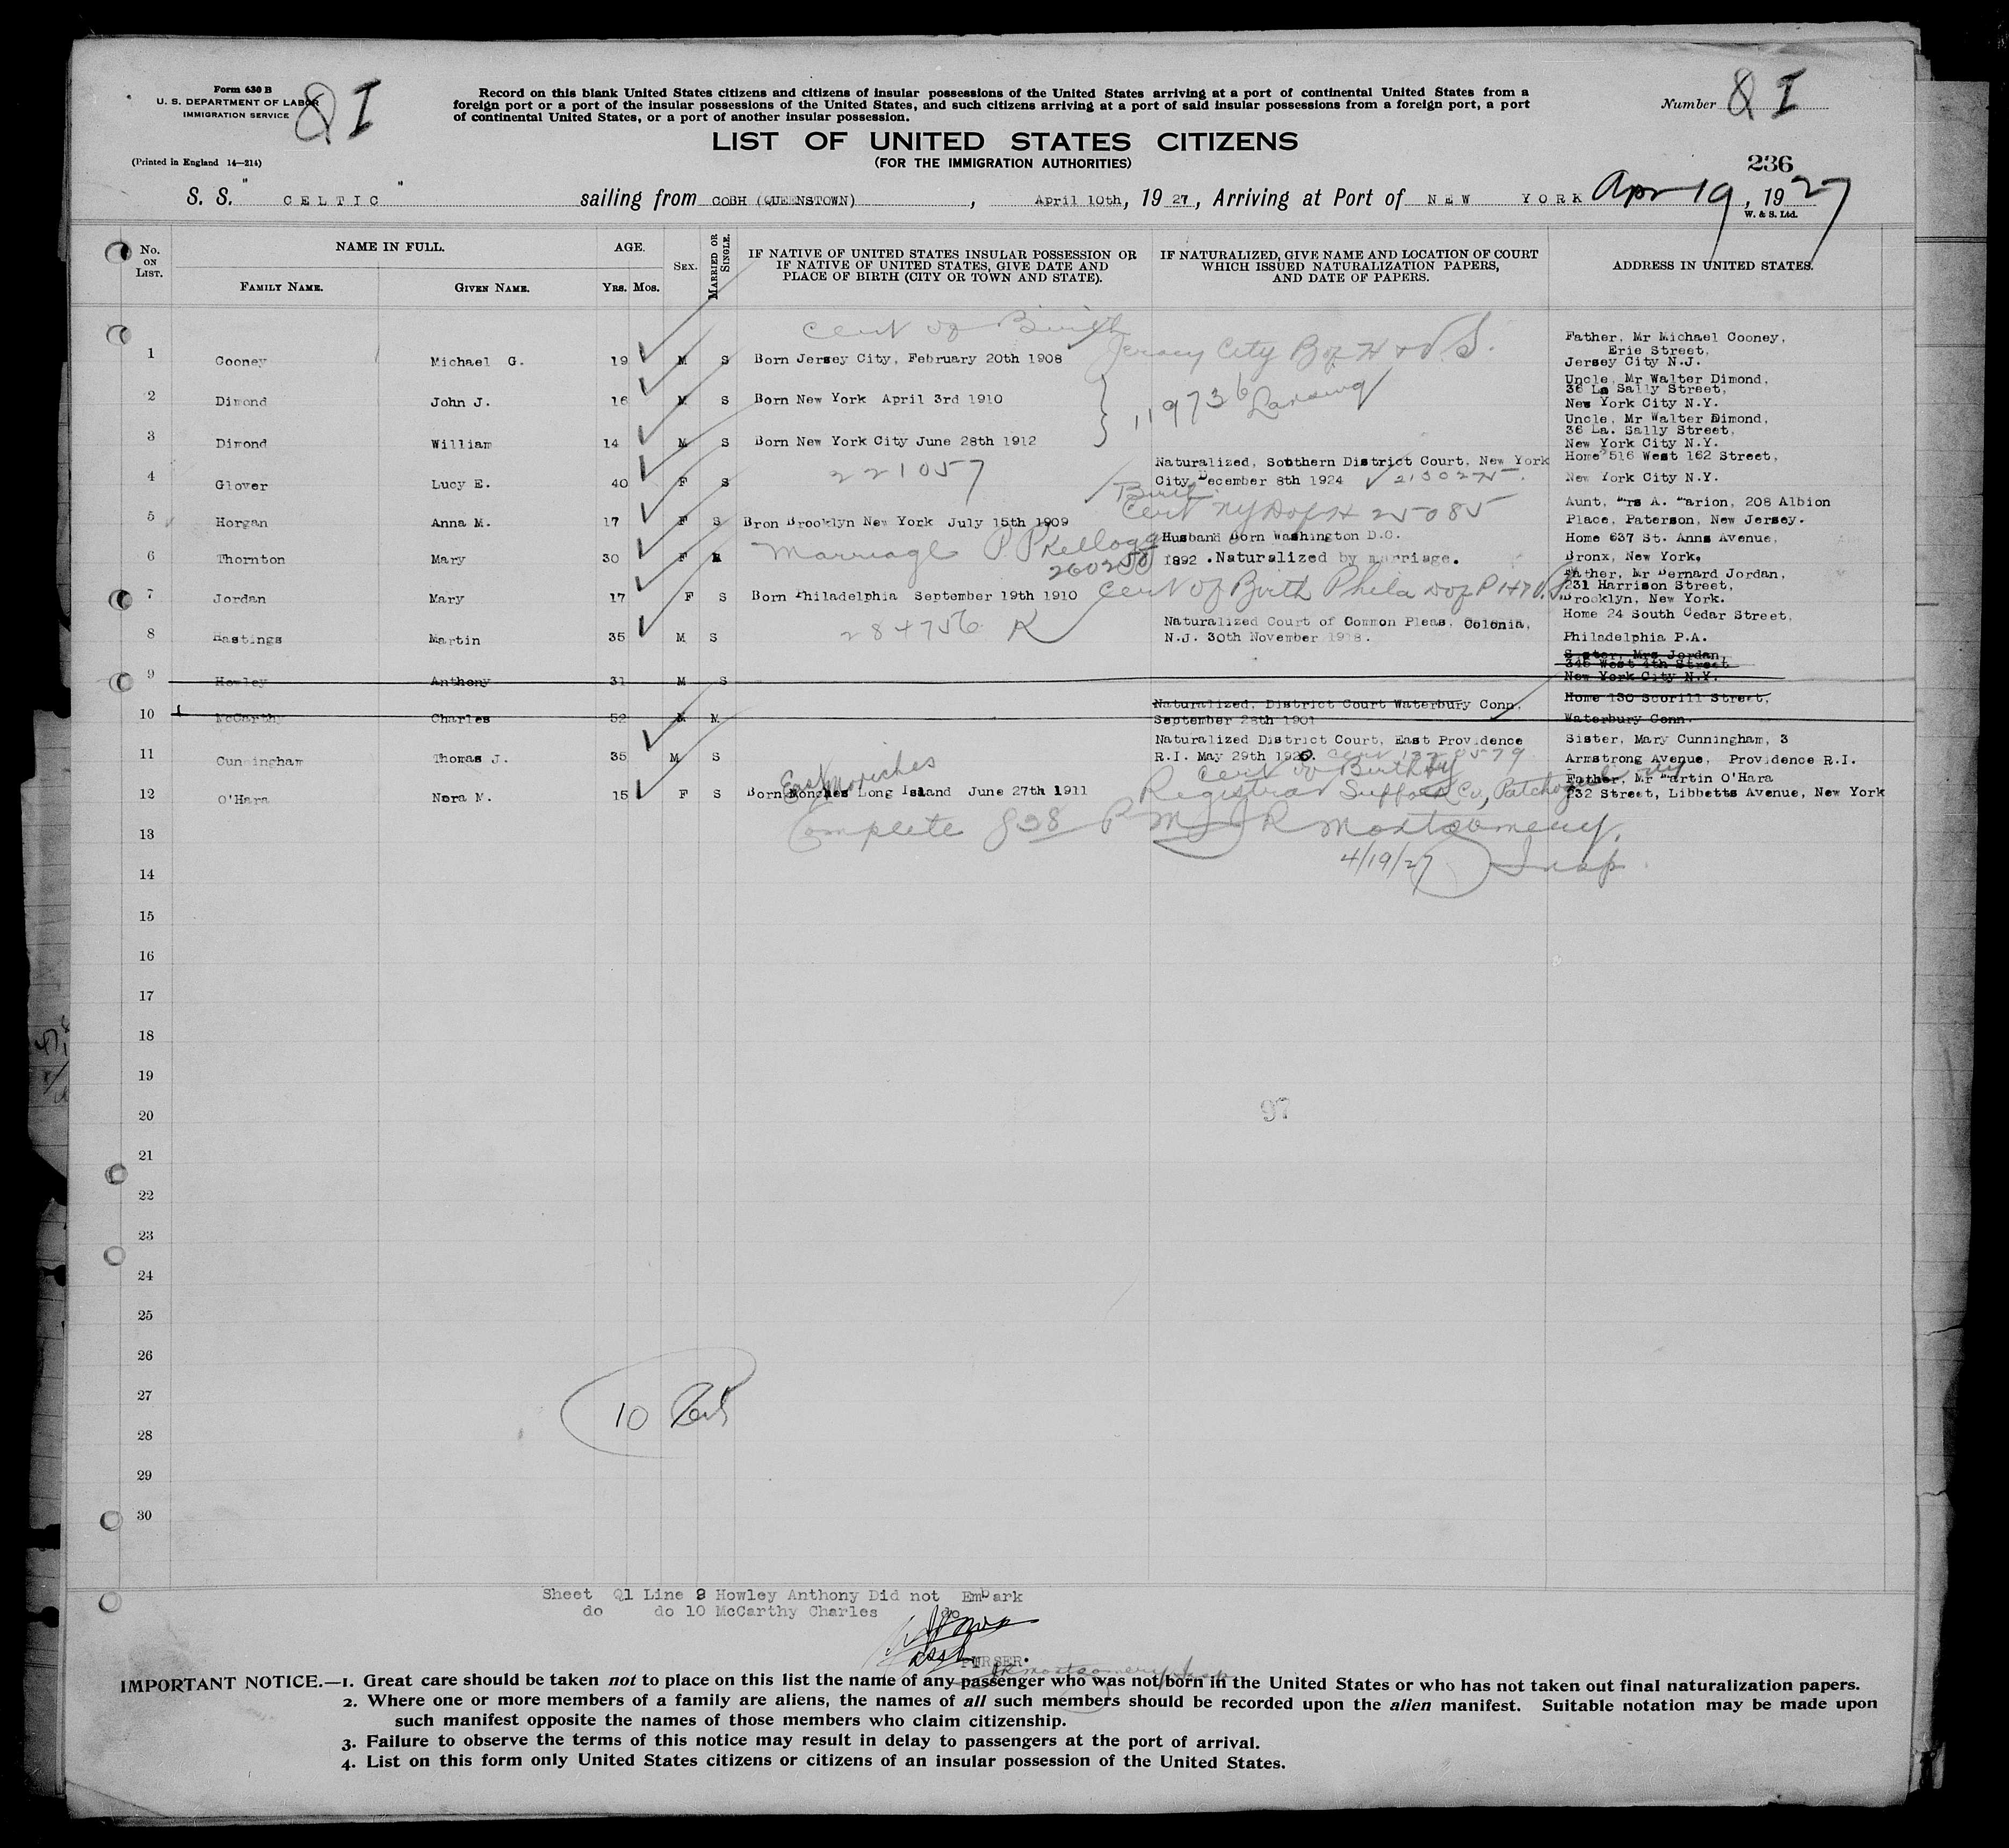 Form 630 B
U. S. DEPARTMENT OF LABOR
IMMIGRATION SERVICE
Q I
Record on this blank United States citizens and citizens of insular possessions of the United States arriving at a port of continental United States from a
foreign port or a port of the insular possessions of the United States, and such citizens arriving at a port of said insular possessions from a foreign port, a port
of continental United States, or a port of another insular possession.
Number Q I
LIST OF UNITED STATES CITIZENS
(FOR THE IMMIGRATION AUTHORITIES)
(Printed in England 14—214)
236
S. S. " CELTIC " sailing from COBH (QUEENSTOWN), April 10th, 1927, Arriving at Port of NEW YORK Apr 19, 1927
W. & S. Ltd.
No. ON LIST. NAME IN FULL. FAMILY NAME. GIVEN NAME. AGE. YRS. MOS. SEX. MARRIED OR SINGLE.
IF NATIVE OF UNITED STATES INSULAR POSSESSION OR
IF NATIVE OF UNITED STATES, GIVE DATE AND
PLACE OF BIRTH (CITY OR TOWN AND STATE).
IF NATURALIZED, GIVE NAME AND LOCATION OF COURT
WHICH ISSUED NATURALIZATION PAPERS,
AND DATE OF PAPERS.
ADDRESS IN UNITED STATES.
Cert of Birth
Jersey City B of H & V.S.
1 Cooney Michael G. 19 M S Born Jersey City, February 20th 1908
Father, Mr Michael Cooney,
Erie Street,
Jersey City N.J.
2 Dimond John J. 16 M S Born New York April 3rd 1910
Uncle, Mr Walter Dimond,
36 La Sally Street,
New York City N.Y.
3 Dimond William 14 M S Born New York City June 28th 1912
Uncle, Mr Walter Dimond,
36 La. Sally Street,
New York City N.Y.
4 Glover Lucy E. 40 F S 221057
Naturalized, Sotthern District Court, New York
City December 8th 1924
Home 516 West 162 Street,
New York City N.Y.
Birth
Cert NY D of H 25085
5 Horgan Anna M. 17 F S Bron Brooklyn New York July 15th 1909
Aunt, Mrs A. Marion, 208 Albion
Place, Paterson, New Jersey.
Marriage P P Kellogg
260250
6 Thornton Mary 30 F M
Husband Born Washington D.C.
1892 .Naturalized by marriage.
Home 637 St. Anns Avenue,
Bronx, New York,
7 Jordan Mary 17 F S Born Philadelphia September 19th 1910 Cert of Birth Phila D of P H & V.S.
Father, Mr Bernard Jordan,
231 Harrison Street,
Brooklyn, New York.
8 Hastings Martin 35 M S 284756 K
Naturalized Court of Common Pleas, Colonia,
N.J. 30th November 1918.
Home 24 South Cedar Street,
Philadelphia P.A.
9 Howley Anthony 31 M S
Sister, Mrs Jordan,
345 West 4th Street
New York City N.Y.
10 McCarthy Charles 52 M M
Naturalized, District Court Waterbury Conn.
September 28th 1901
Home 130 Scorill Street,
Waterbury Conn.
11 Cunningham Thomas J. 35 M S
Naturalized District Court, East Providence
R.I. May 29th 1920.
Sister, Mary Cunningham, 3
Armstrong Avenue, Providence R.I.
East Moriches
Cert of Birth by
Registrar Suffolk Co, Patchogue
12 O'Hara Nora M. 15 F S Born Monches Long Island June 27th 1911
Father, Mr Martin O'Hara
232 Street, Libbetts Avenue, New York
Complete 828 PM J R Montgomery.
4/19/27 Insp
13
14
15
16
17
18
19
20
97
21
22
23
24
25
26
27
10
28
29
30
Sheet Q1 Line 9 Howley Anthony Did not Embark
do do 10 McCarthy Charles do
PURSER.
J R Montgomery Insp
IMPORTANT NOTICE.—1. Great care should be taken not to place on this list the name of any passenger who was not born in the United States or who has not taken out final naturalization papers.
2. Where one or more members of a family are aliens, the names of all such members should be recorded upon the alien manifest. Suitable notation may be made upon
such manifest opposite the names of those members who claim citizenship.
3. Failure to observe the terms of this notice may result in delay to passengers at the port of arrival.
4. List on this form only United States citizens or citizens of an insular possession of the United States.